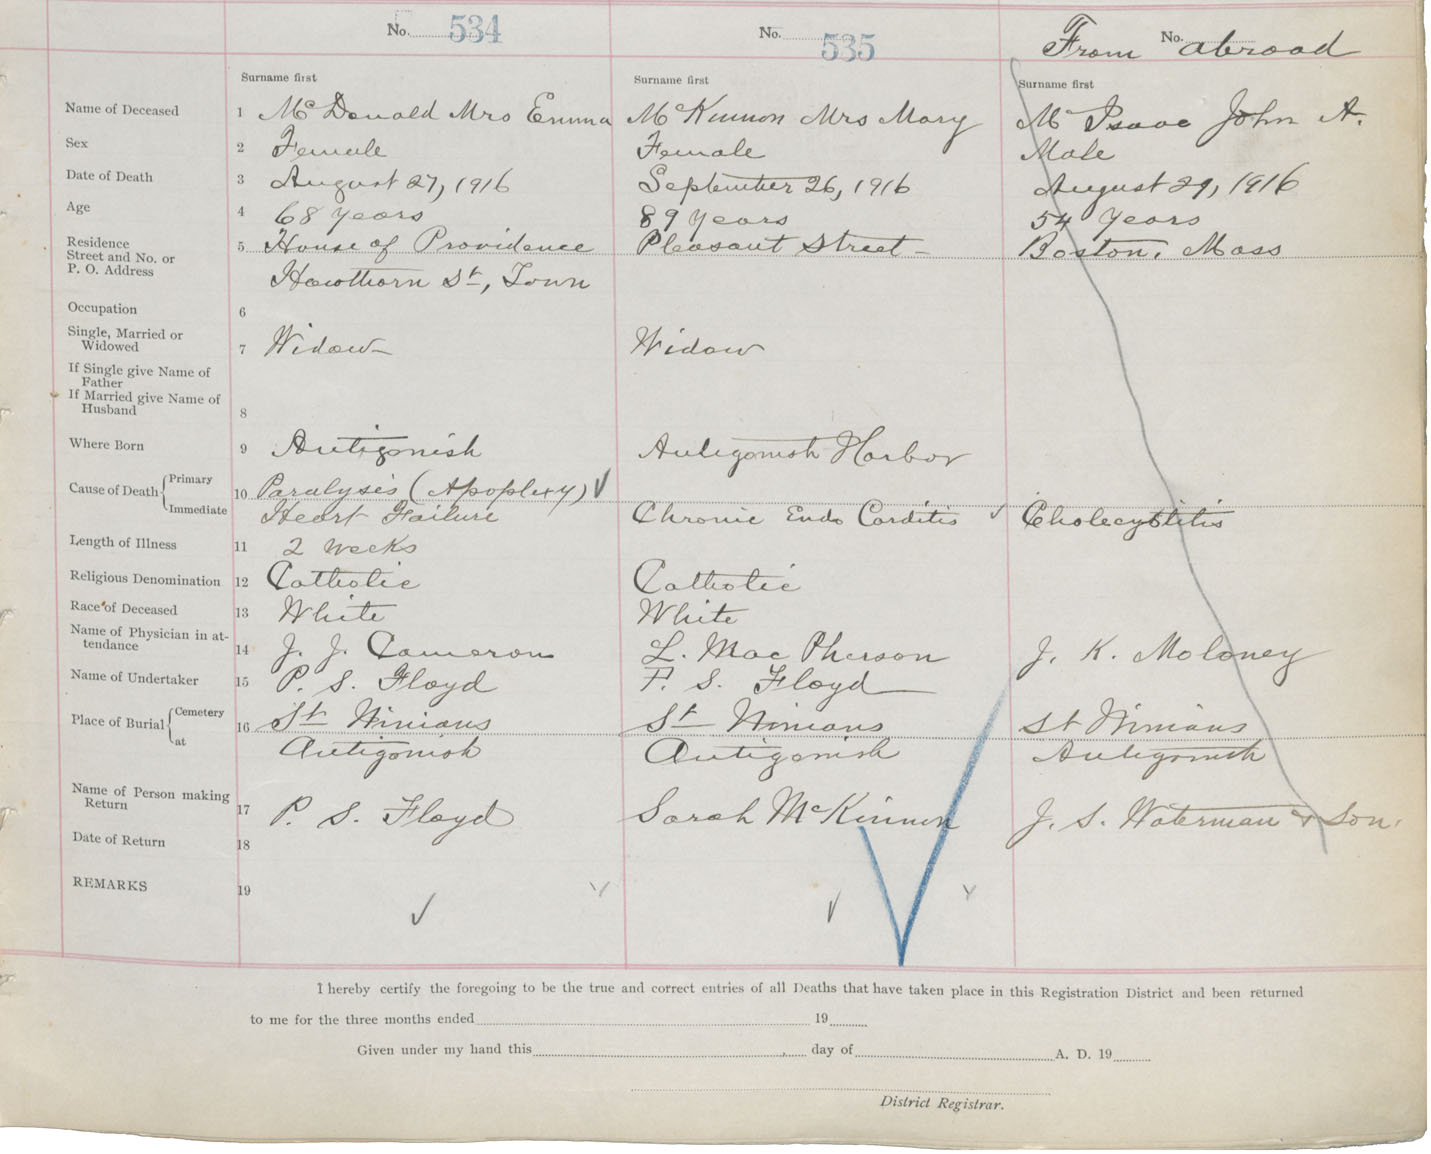 No. 534 No. 535 From No. abroad
Surname first Surname first Surname first
Name of Deceased 1 McDonald Mrs Emma McKinnon Mrs Mary McIsaac John A.
Sex 2 Female Female Male
Date of Death 3 August 27, 1916 September 26, 1916 August 29, 1916
Age 4 68 years 89 years 54 years
Residence
Street and No. or 5 House of Providence Pleasant Street Boston, Mass
P. O. Address Hawthorn St, Town
Occupation 6
Single, Married or
Widowed 7 Widow Widow
If Single give Name of
Father
If Married give Name of
Husband 8
Where Born 9 Antigonish Antigonish Harbor
Cause of Death { Primary 10 Paralysis (Apoplexy)
Immediate Heart Failure Chronic Endo Carditis Cholecystitis
Length of Illness 11 2 weeks
Religious Denomination 12 Catholic Catholic
Race of Deceased 13 White White
Name of Physician in at-
tendance 14 J. J. Cameron L. MacPherson J. K. Moloney
Name of Undertaker 15 P. S. Floyd F. S. Floyd
Place of Burial { Cemetery 16 St Ninians St Ninians St Ninians
at Antigonish Antigonish Antigonish
Name of Person making
Return 17 P. S. Floyd Sarah McKinnon J. S. Waterman & Son.
Date of Return 18
REMARKS 19
I hereby certify the foregoing to be the true and correct entries of all Deaths that have taken place in this Registration District and been returned
to me for the three months ended 19
Given under my hand this day of A. D. 19
District Registrar.